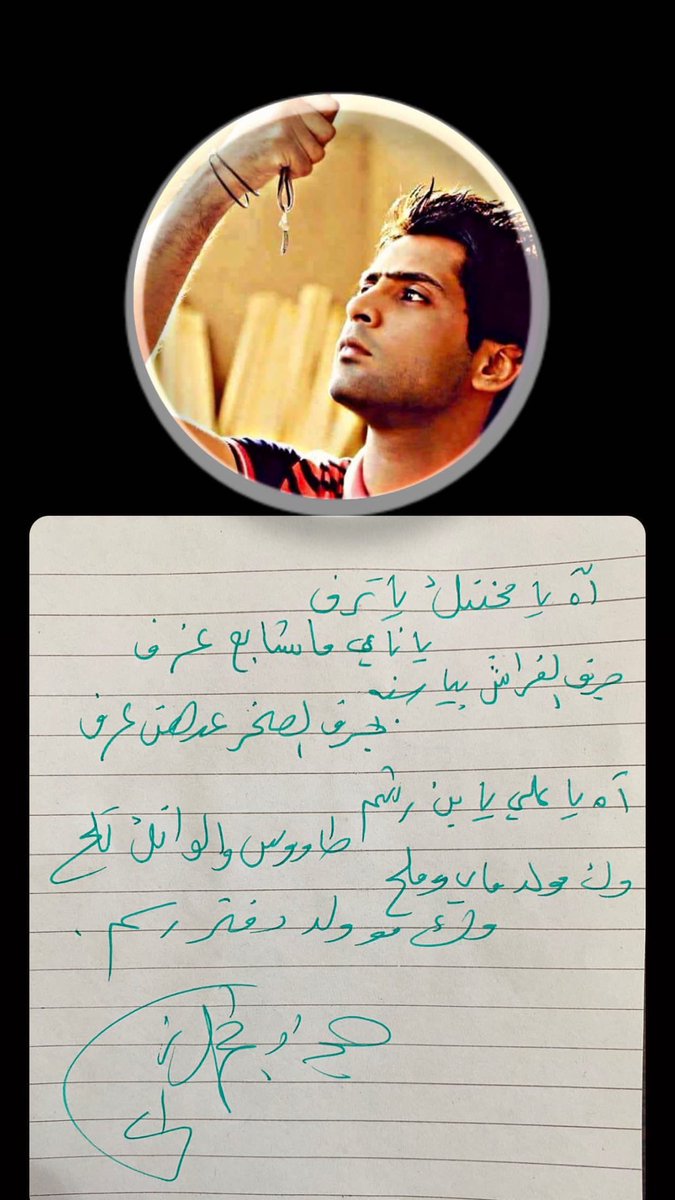 آه يا مختلف يا ترف
يا ناي ما شابع عزف
حريق الفراش بيا سنه
بجرف الصخر عدهن عرف
آه يا علي يا بن رشم
طاووس والوانك تلح
وك مو ولد ماي وملح
وك مو ولد دفتر رسم .